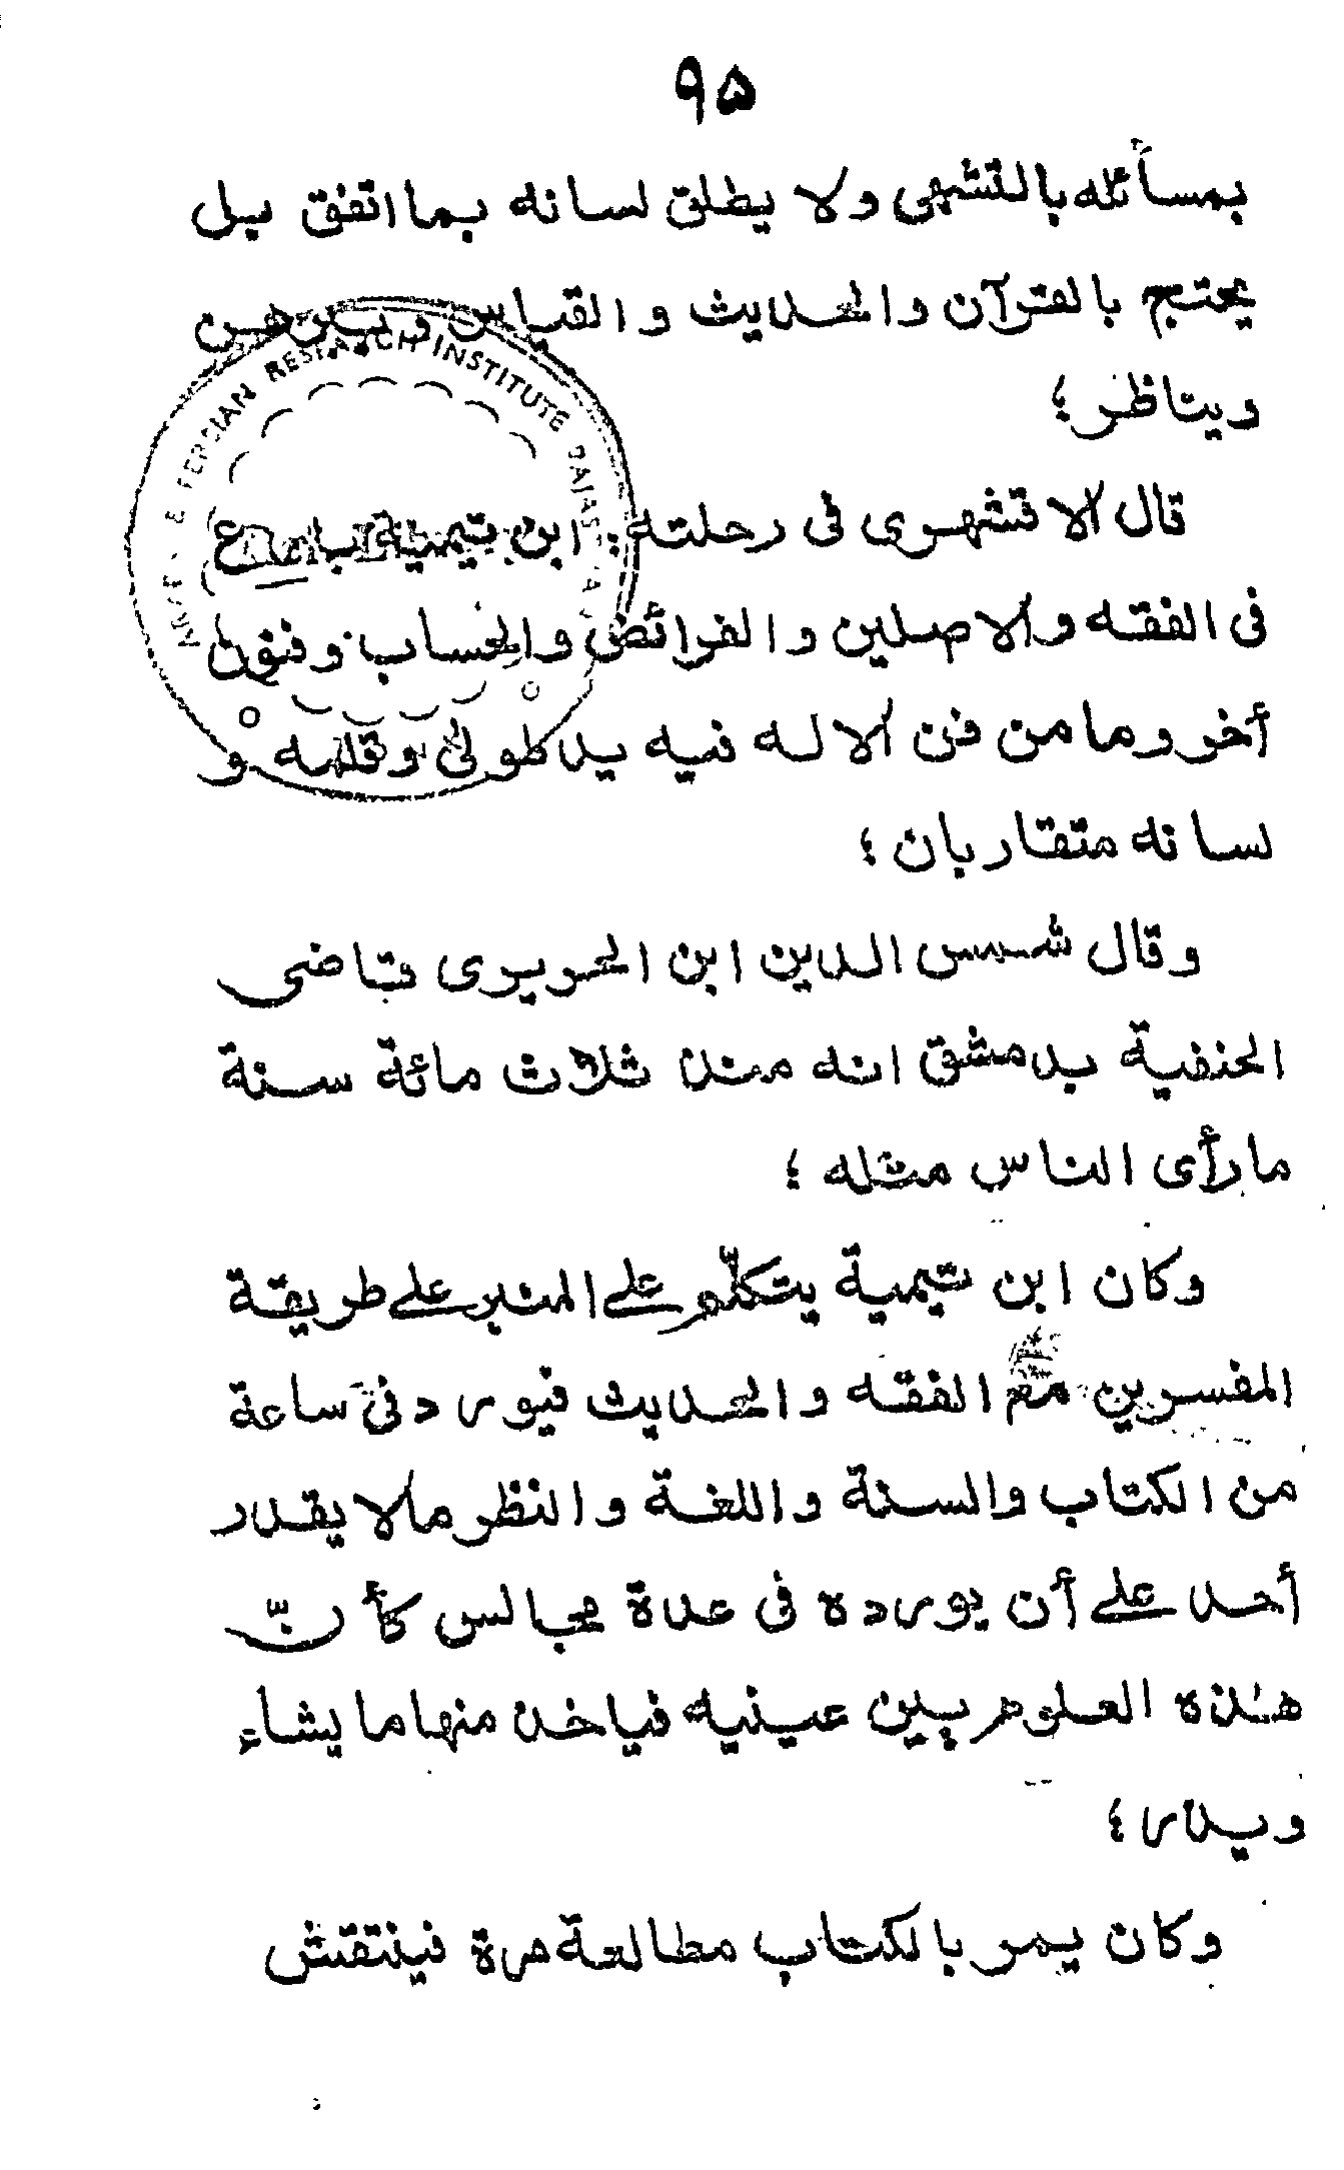 ۹۵
بمسأئله بالتشهى ولا يطلق لسانه بما اتفق بل
يحتج بالقرآن والحديث والقياس ويبرهن
ويناظر؛
قال الاقشهرى فى رحلته: ابن تيمية بارع
فى الفقه والاصلين والفرائض والحساب وفنون
أخر وما من فن الا له فيه يد طولى وقلمه و
لسانه متقاربان؛
وقال شمس الدين ابن الحريرى قاضى
الحنفية بدمشق انه منذ ثلاث مائة سنة
مارأى الناس مثله؛
وكان ابن تيمية يتكلّم على المنبر على طريقة
المفسرين مع الفقه والحديث فيورد فى ساعة
من الكتاب والسنة واللغة والنظر مالا يقدر
أحد على أن يورده فى عدة مجالس كأنّ
هذه العلوم بين عينيه فياخذ منها ما يشاء
ويذر؛
وكان يمر بالكتاب مطالعة مرة فينتقش
RESEARCH INSTITUTE
PERSIAN